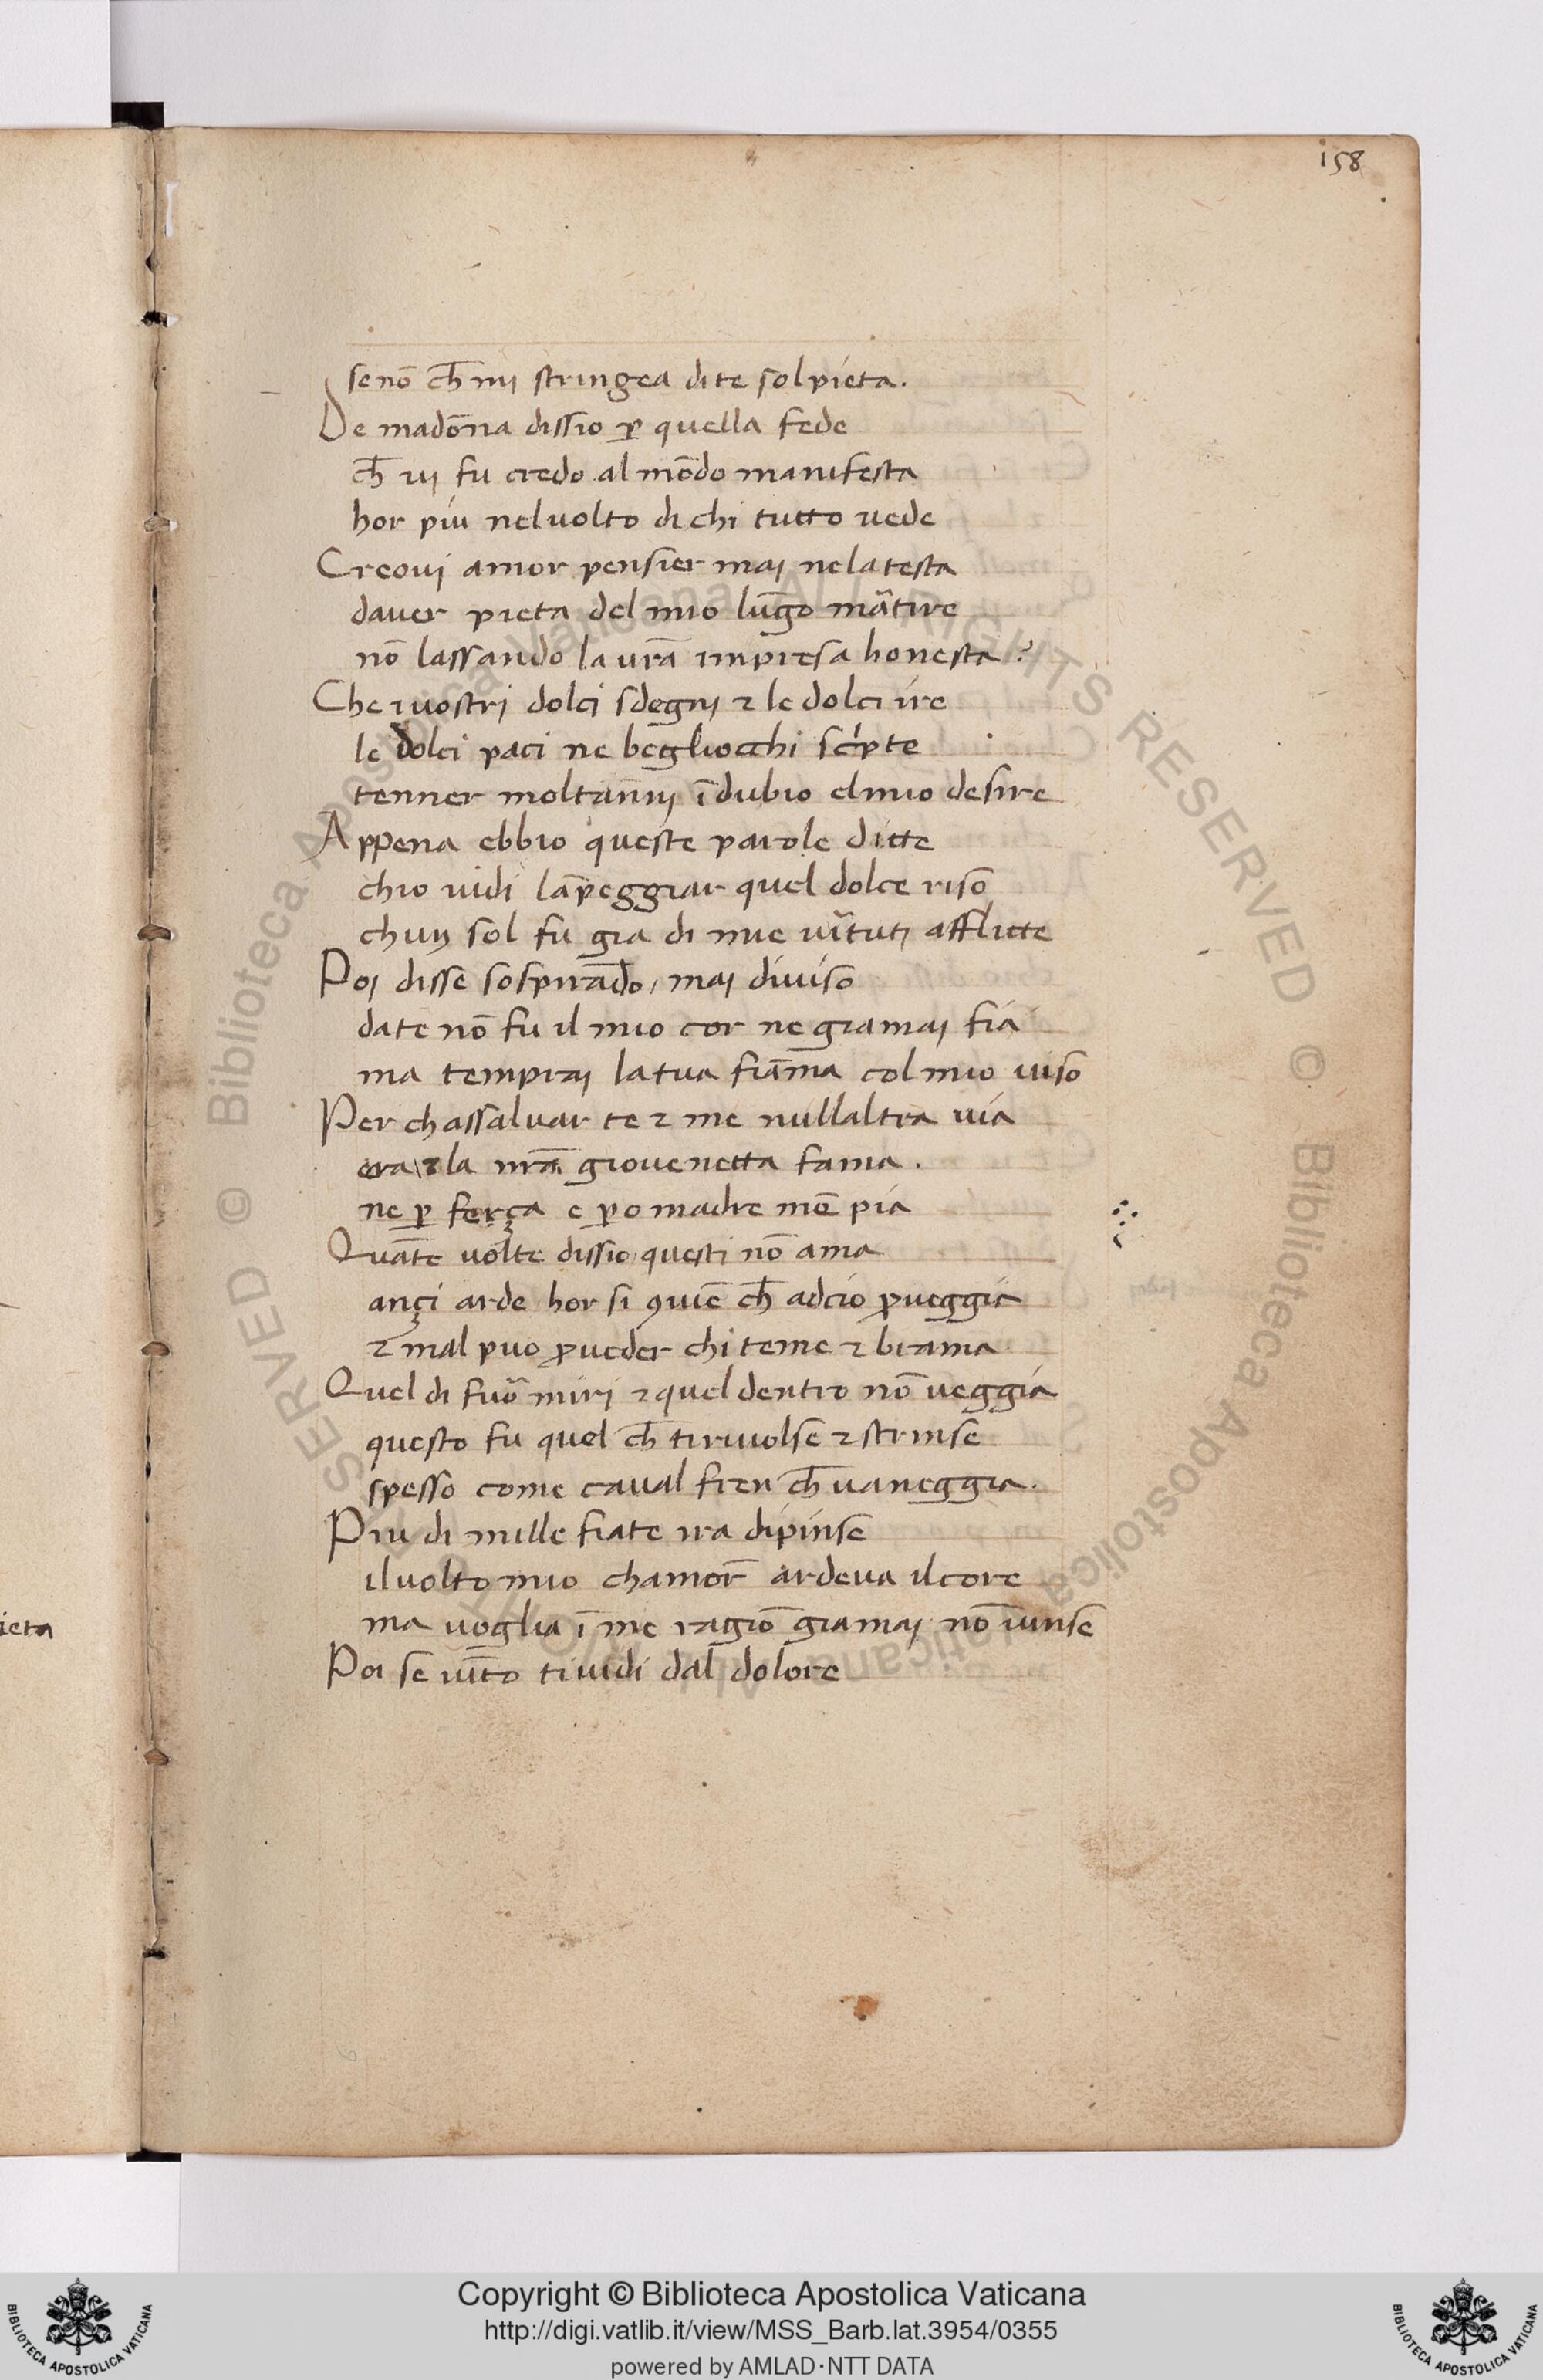 158
se nõ ch̄ mi stringea di te sol pieta.
De madõna diss'io ꝑ quella fede
ch̄ vi fu credo al mõdo manifesta
hor piu nel uolto di chi tutto uede
Creoui amor pensier maj ne la testa
dauer pieta del mio lũgo mãtire
nõ lassando la vrã impresa honesta?
Che i uostri dolci sdegnj ⁊ le dolci ire
le dolci paci ne begliocchi scripte
tenner moltannj ĩ dubio el mio desire
Appena ebbio queste parole ditte
chio uidi lãpeggiar quel dolce riso
chun sol fu gia di mie uĩtutj afflicte
Poj disse sospirãdo, maj diuiso
da te nõ fu il mio cor ne giamaj fia
ma tempraj la tua fiãma col mio uiso
Per chassaluar te ⁊ me nullaltra uia
era ⁊ la nrã giouenetta fama.
ne ꝑ ferça e ꝑo madre mẽ pia
Quãte uolte dissio questi nõ ama
ançi arde hor si ꝯuiẽ ch̄ adcio ꝓueggia
⁊ mal puo ꝓueder chi teme ⁊ brama
Quel di fuõ miri ⁊ quel dentro nõ ueggia
questo fu quel ch̄ ti riuolse ⁊ strinse
spesso come caual fren ch̄ uaneggia.
Piu di mille fiate ira dipinse
il uolto mio chamor ardeua il core
ma uoglia ĩ me ragiõ giamaj nõ iunse
Poi se uĩto ti uidi dal dolore
ieta
© Biblioteca Apostolica Vaticana ALL RIGHTS RESERVED © Biblioteca Apostolica Vaticana ALL RIGHTS RESERVED
Copyright © Biblioteca Apostolica Vaticana
http://digi.vatlib.it/view/MSS_Barb.lat.3954/0355
powered by AMLAD·NTT DATA
BIBLIOTECA APOSTOLICA VATICANA
BIBLIOTECA APOSTOLICA VATICANA